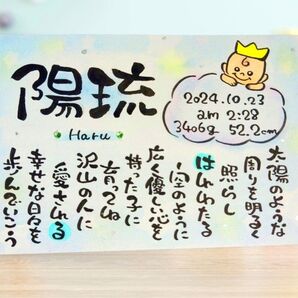 陽琉
Haru
2024.10.23
am 2:28
3406g 52.2cm
太陽のような
周りを明るく
照らし
はれわたる
空のように
広く優しい心を
持った子に
育ってね
沢山の人に
愛される
幸せな日々を
歩んでいこう